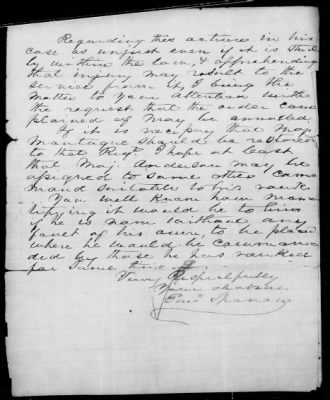 Regarding this action in his
case as unjust even if it is strict
ly within the law, & apprehending
that injury may result to the
service from it, I bring the
matter to your attention with
the request that the order com
plained of may be annulled
If it is necessary that Maj
Montague should be restored
to that Regt. I hope at least
that Maj. Anderson may be
assigned to some other com
mand suitable to his rank.
You well know how mor
tifying it would be to him
if he is now without any
fault of his own, to be placed
where he would be comman
ded by those he has ranked
for some time
Very Respectfully
Your